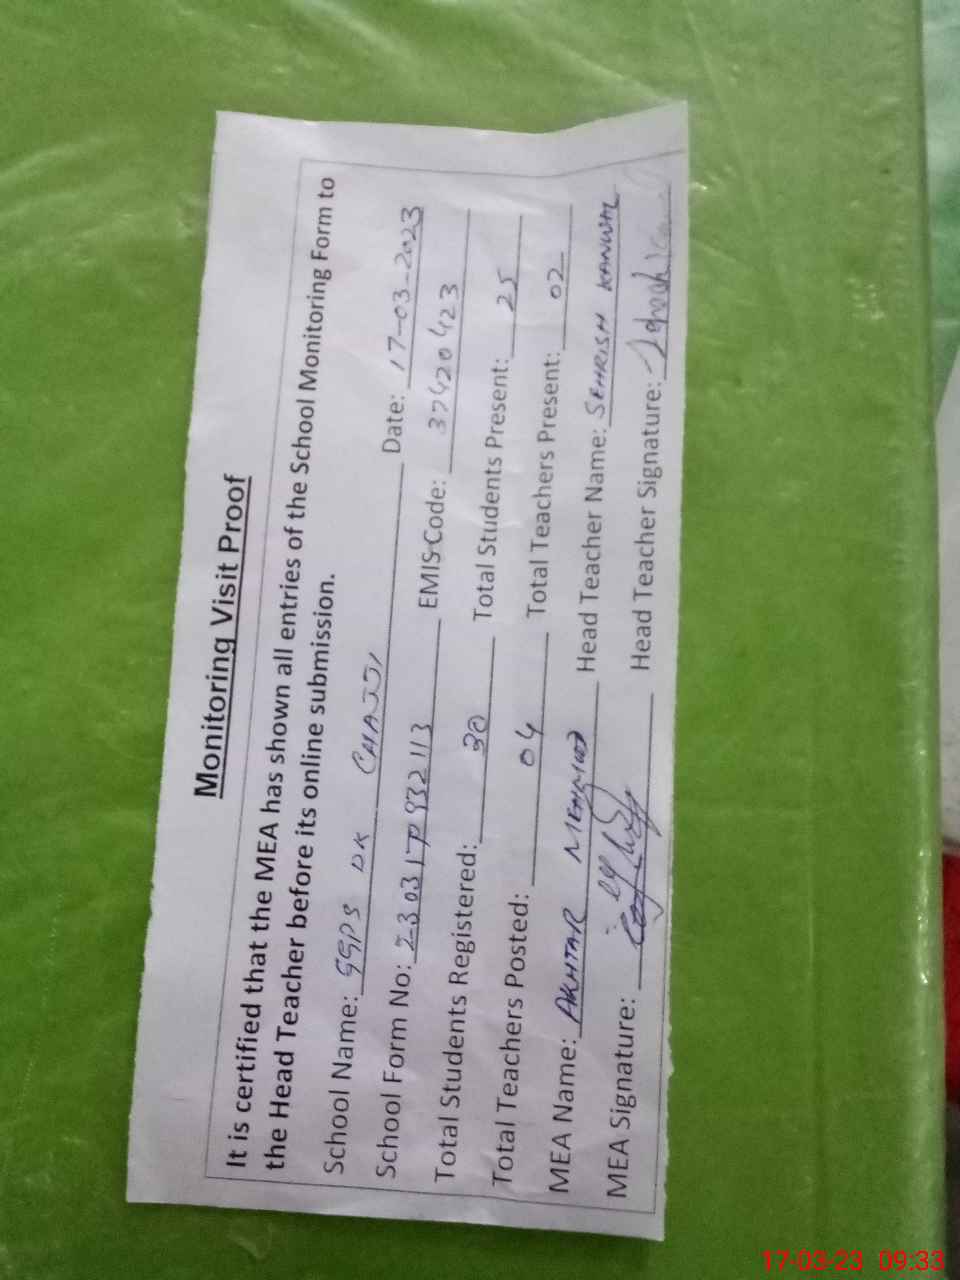 Monitoring Visit Proof
It is certified that the MEA has shown all entries of the School Monitoring Form to
the Head Teacher before its online submission.
School Name: GGPS DK CHAJJI Date: 17-03-2023
School Form No: 230317P932113 EMIS Code: 37420423
Total Students Registered: 30 Total Students Present: 25
Total Teachers Posted: 04 Total Teachers Present: 02
MEA Name: AKHTAR MEHMOOD Head Teacher Name: SEHRISH KANWAL
MEA Signature: Head Teacher Signature:
17-03-23 09:33